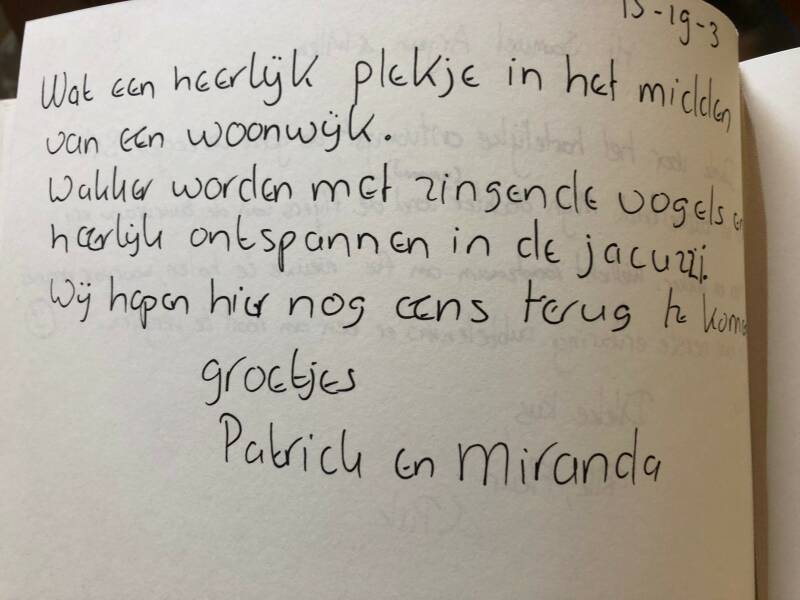 15-19-3
Wat een heerlijk plekje in het midden
van een woonwijk.
Wakker worden met zingende vogels en
heerlijk ontspannen in de jacuzzi.
Wij hopen hier nog eens terug te komen
groetjes
Patrick en Miranda